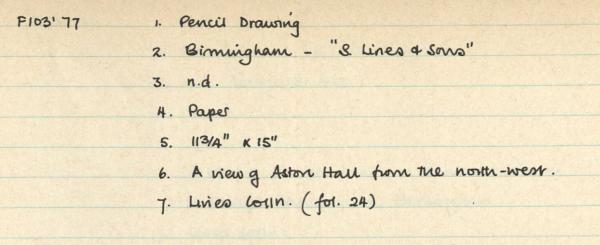 F103' 77 1. Pencil Drawing
2. Birmingham - "S. Lines & Sons"
3. n.d.
4. Paper
5. 11 3/4" x 15"
6. A view of Aston Hall from the north-west.
7. Lines Colln. (fol. 24)